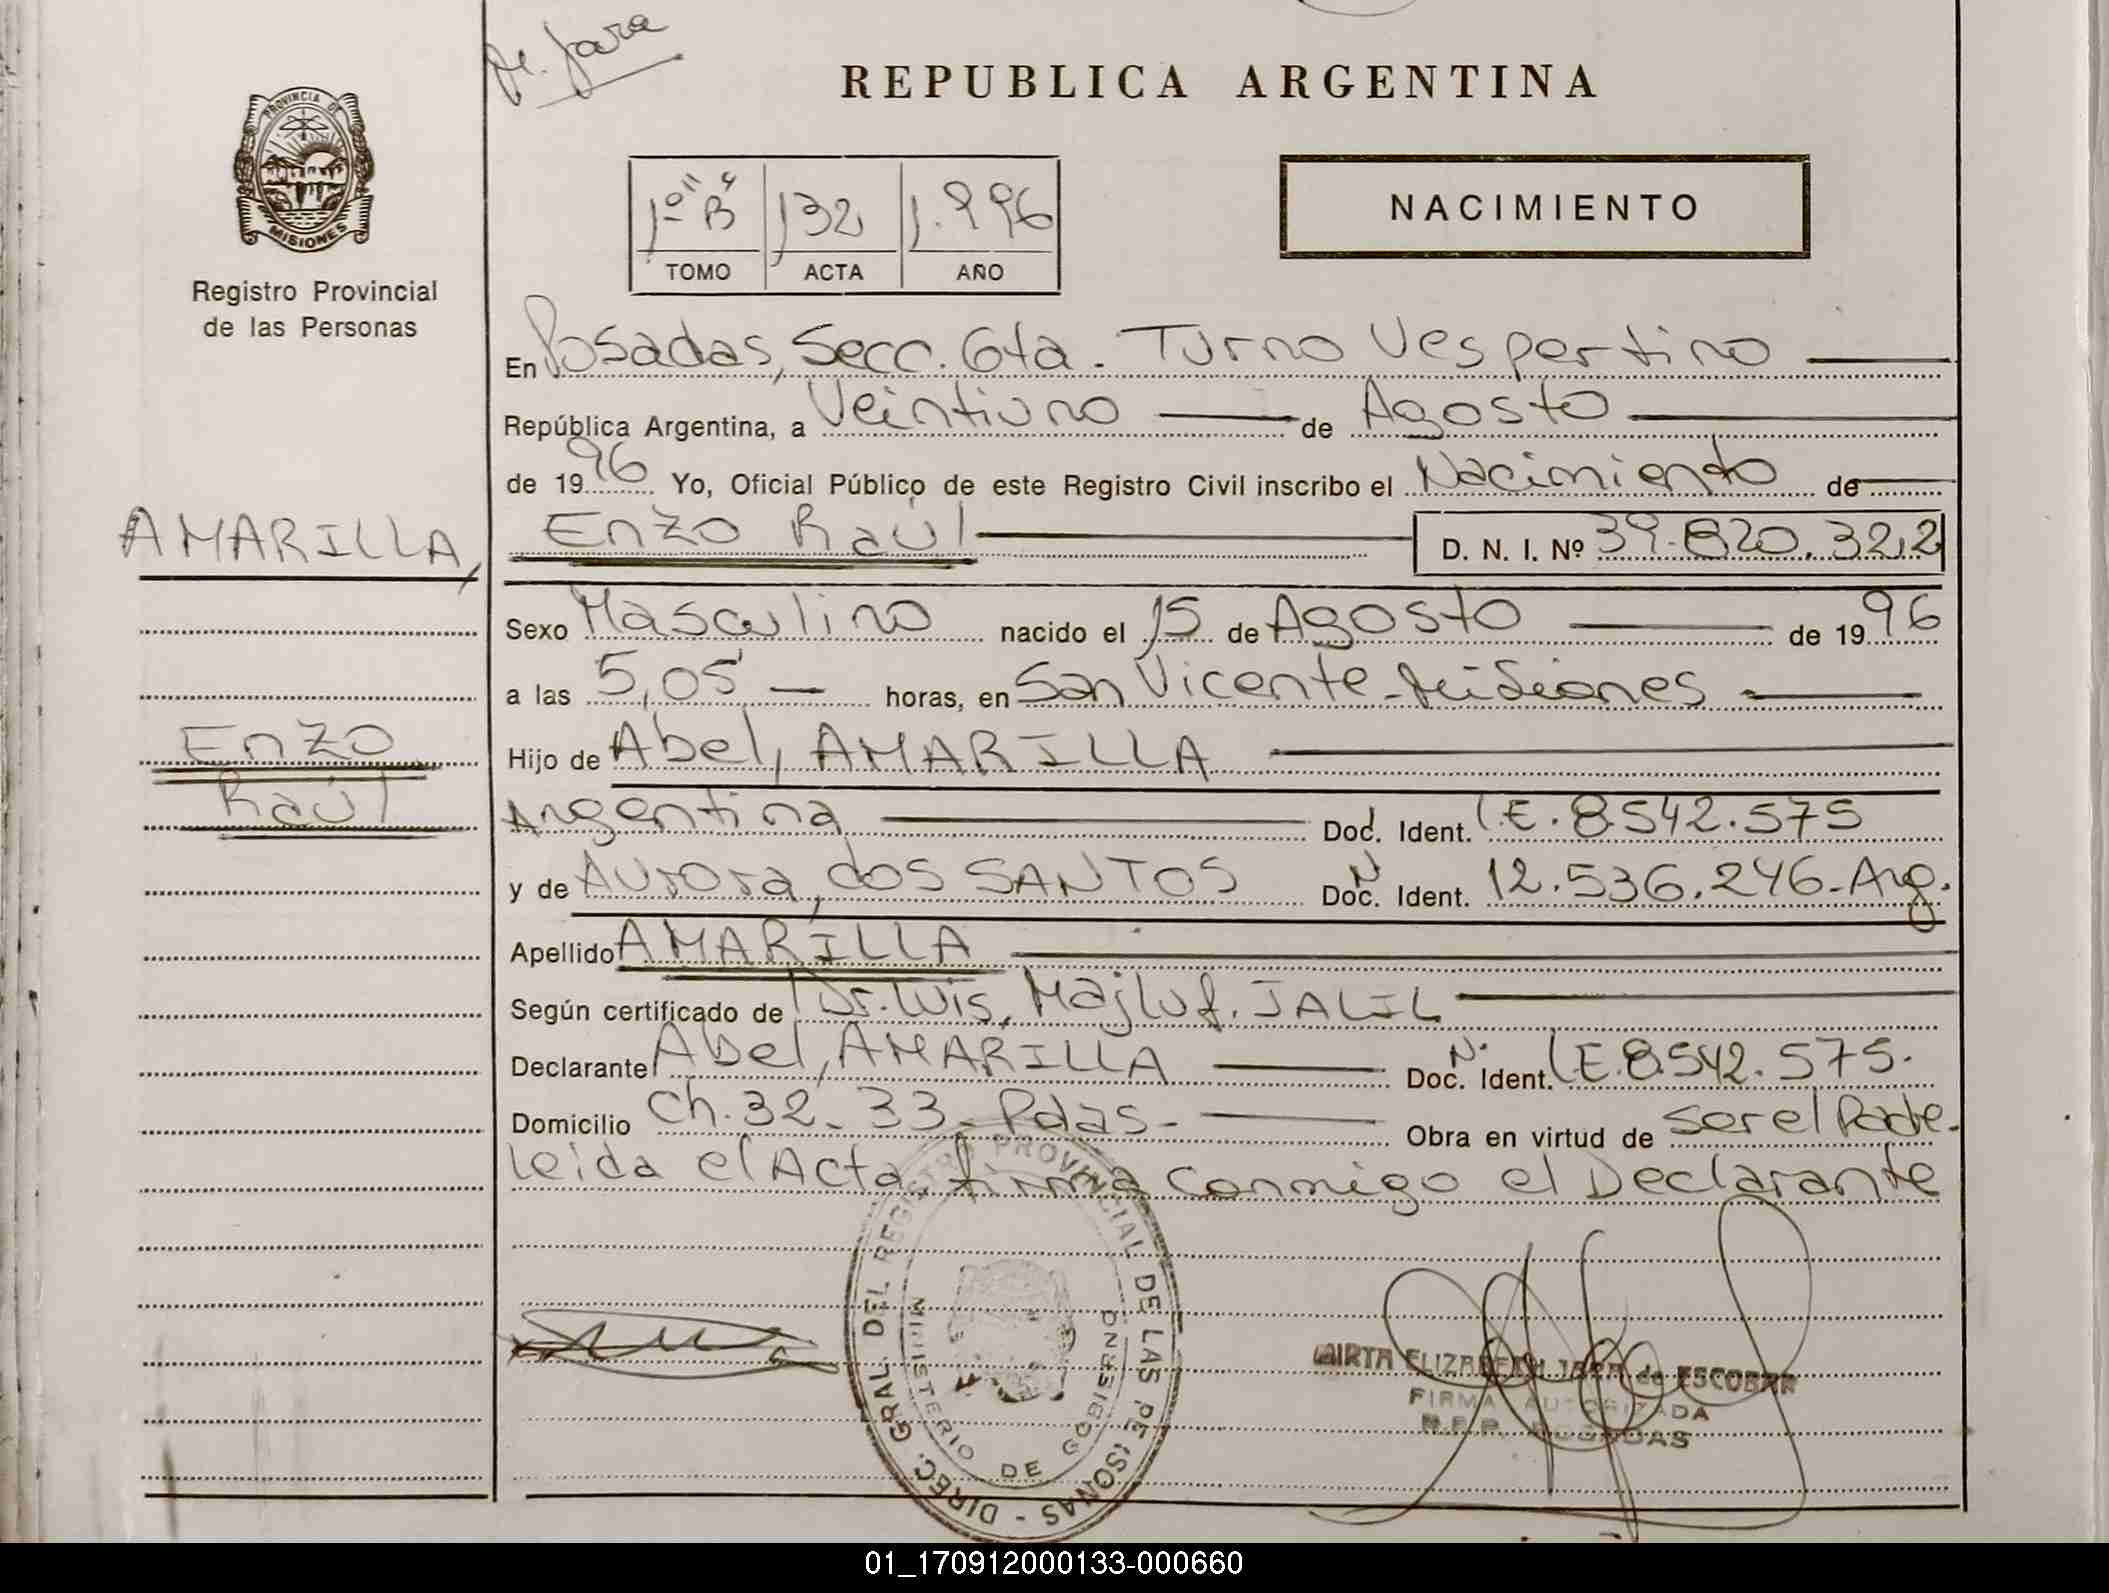 M. Jara
REPUBLICA ARGENTINA
PROVINCIA DE
MISIONES
Registro Provincial
de las Personas
1º "B" 132 1.996
TOMO ACTA AÑO
NACIMIENTO
En Posadas, Secc. 6ta. Turno Vespertino
República Argentina, a Veintiuno de Agosto
de 1996 Yo, Oficial Público de este Registro Civil inscribo el Nacimiento de
AMARILLA, Enzo Raúl D. N. I. Nº 39.820.322
Sexo Masculino nacido el 15 de Agosto de 1996
a las 5,05 horas, en San Vicente-Misiones
Enzo
Hijo de Abel, AMARILLA
Raúl
Argentina Doc. Ident. L.E. 8542.575
y de Aurora, dos SANTOS Doc. Ident. N 12.536.246-Arg.
Apellido AMARILLA
Según certificado de Dr. Luis, Majluf. JALIL
Declarante Abel, AMARILLA Doc. Ident. Nº LE.8.542.575.
Domicilio Ch. 32-33-Pdas- Obra en virtud de ser el Padre-
Leida el Acta, firma conmigo el Declarante
DIREC. GRAL. DEL REGISTRO PROVINCIAL DE LAS PERSONAS -
MINISTERIO DE GOBIERNO
MIRTA ELIZABETH JARA de ESCOBAR
FIRMA AUTORIZADA
R.P.P. POSADAS
01_170912000133-000660